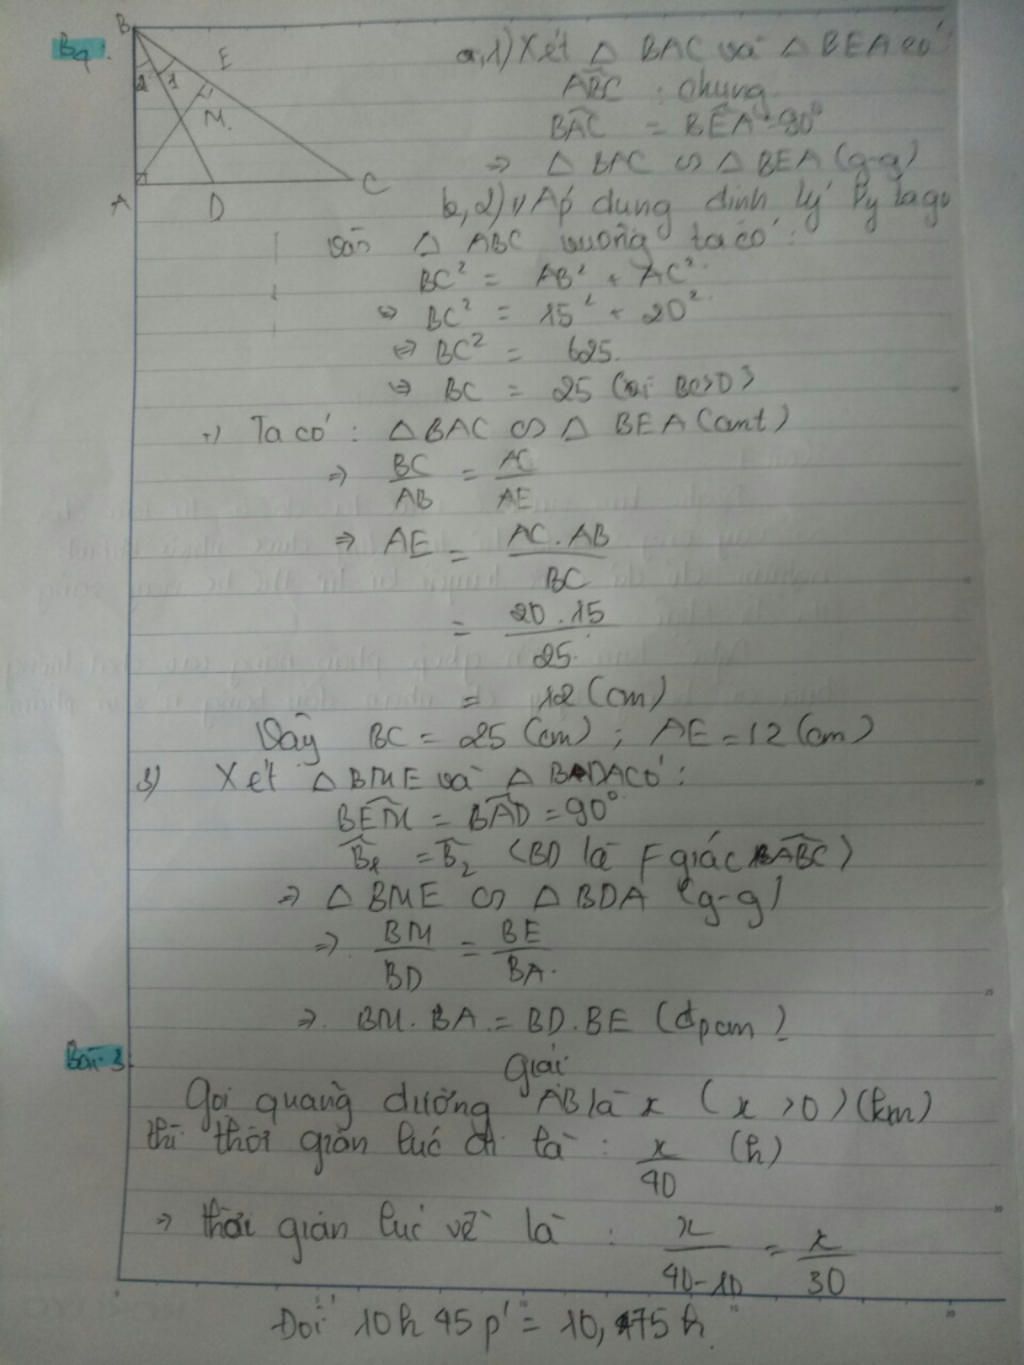 B4:
B
E
2
1
M.
A
D
C
a,1) Xét △ BAC và △ BEA có
ABC : chung
BAC = BEA = 90°
⇒ △ BAC ∽ △ BEA (g-g)
b,2) +) Áp dụng định lý Pytago
vào △ ABC vuông ta có:
BC² = AB² + AC²
⇔ BC² = 15² + 20²
⇔ BC² = 625.
⇒ BC = 25 (vì BC>0)
+) Ta có: △ BAC ∽ △ BEA (cmt)
⇒ BC/AB = AC/AE
⇒ AE = AC.AB/BC
= 20.15/25
= 12 (cm)
Vậy BC = 25 (cm) ; AE = 12 (cm)
3) Xét △ BME và △ BDA có:
BEM = BAD = 90°
B1 = B2 (BD là F giác ABC)
⇒ △ BME ∽ △ BDA (g-g)
⇒ BM/BD = BE/BA.
⇒ BM.BA = BD.BE (đpcm)
Bài 3
Giải
Gọi quãng đường AB là x (x >0) (km)
thì thời gian lúc đi là : x/40 (h)
⇒ thời gian lúc về là : x/40-10 = x/30
Đổi 10h 45p' = 10,75h